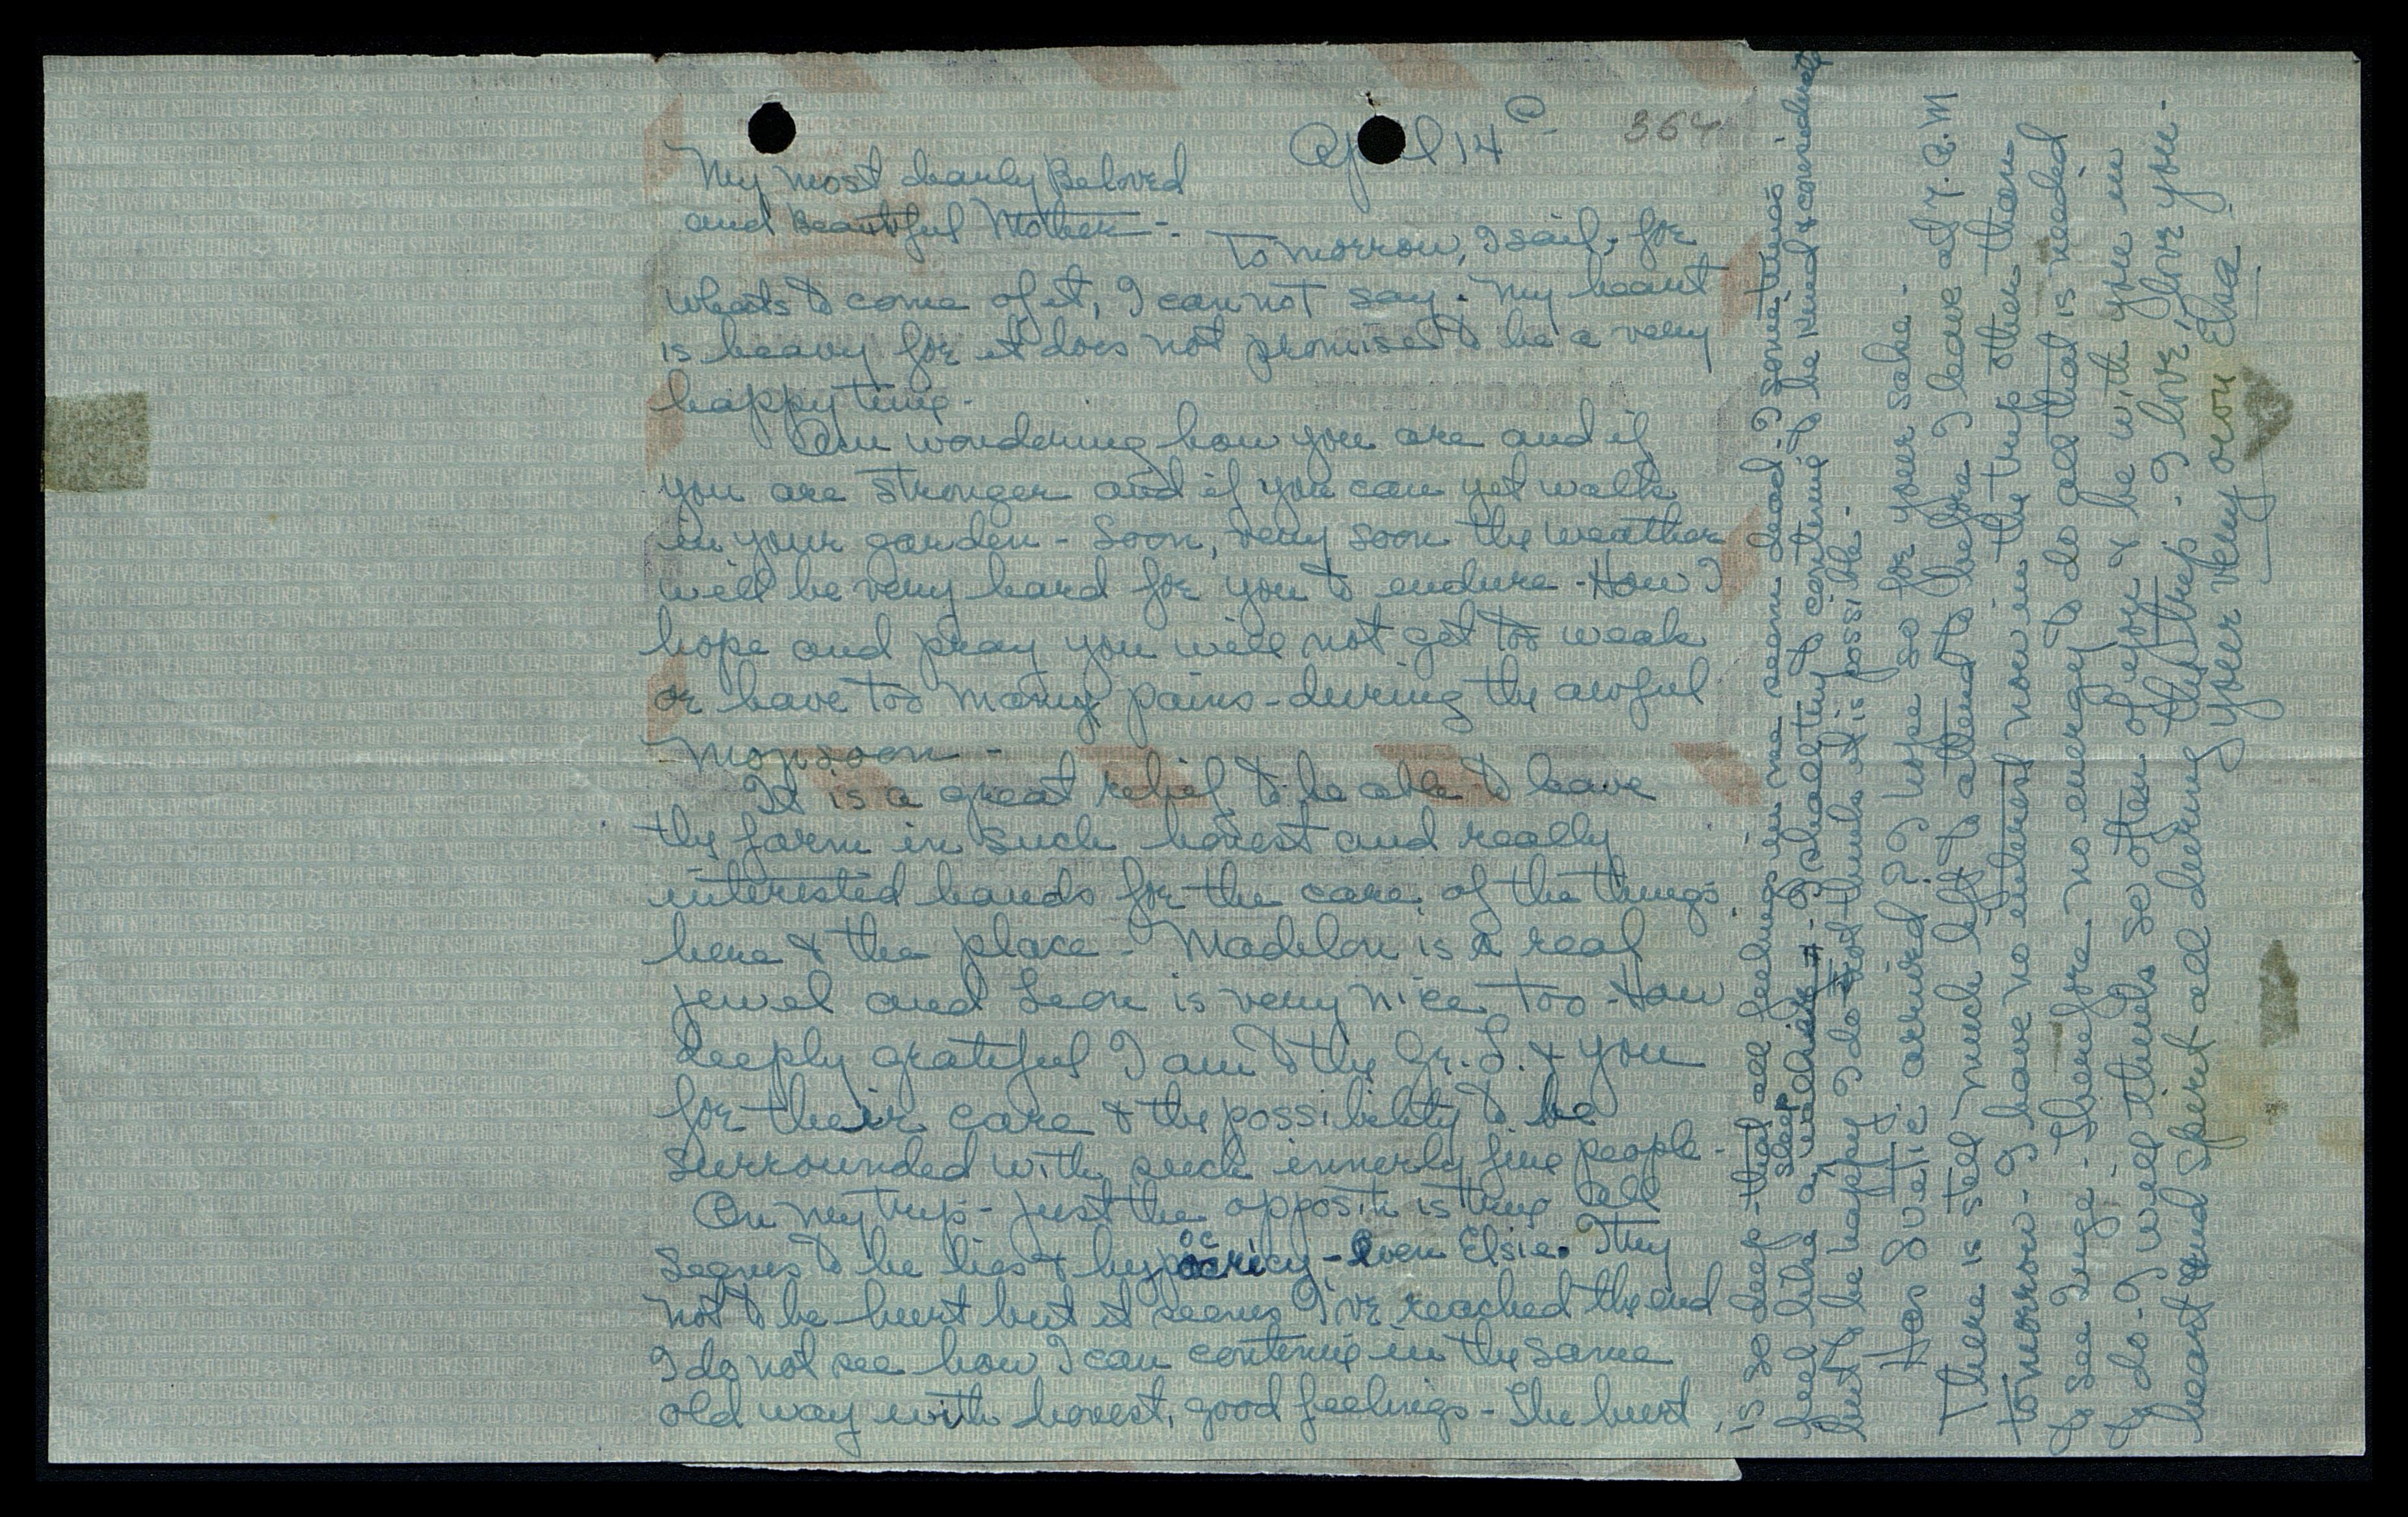 364
April 14th
My most dearly Beloved
and Beautiful Mother -
Tomorrow, I sail, for
whats to come of it, I can not say. My heart
is heavy for it does not promise to be a very
happy time -
Am wondering how you are and if
you are stronger and if you can yet walk
in your garden - Soon, very soon the weather
will be very hard for you to endure - How I
hope and pray you will not get too weak
or have too many pains - during the awful
monsoon -
It is a great relief to be able to leave
the farm in such honest and really
interested hands for the care of the things
here & the place - Madelon is a real
jewel and Leon is very nice too - How
deeply grateful I am to the Gr. S. & you
for their care & the possibility to be
surrounded with such innerly fine people -
On my trip - just the opposit is true all
seems to be lies & hypocricy - Even Elsie. Try
not to be hurt but it seems I've reached the end
I do not see how I can continue in the same
old way with honest, good feelings - The hurt
is so deep - that all feelings in me seem dead - I some times
feel like a sleep walker - I shall try to continue to be kind & considerate
but to be happy I do not think it is possible -
Has Svetic arrived? I hope so for your sake -
There is still much left to attend to before I leave at 7. A.M
tomorrow - I have no interest now in the trip other than
to see Inge - Therefore no energy to do all that is needed
to do - I will think so often of you & be with you in
heart and Spirit all during this trip - I love, I love you -
your very own Elva